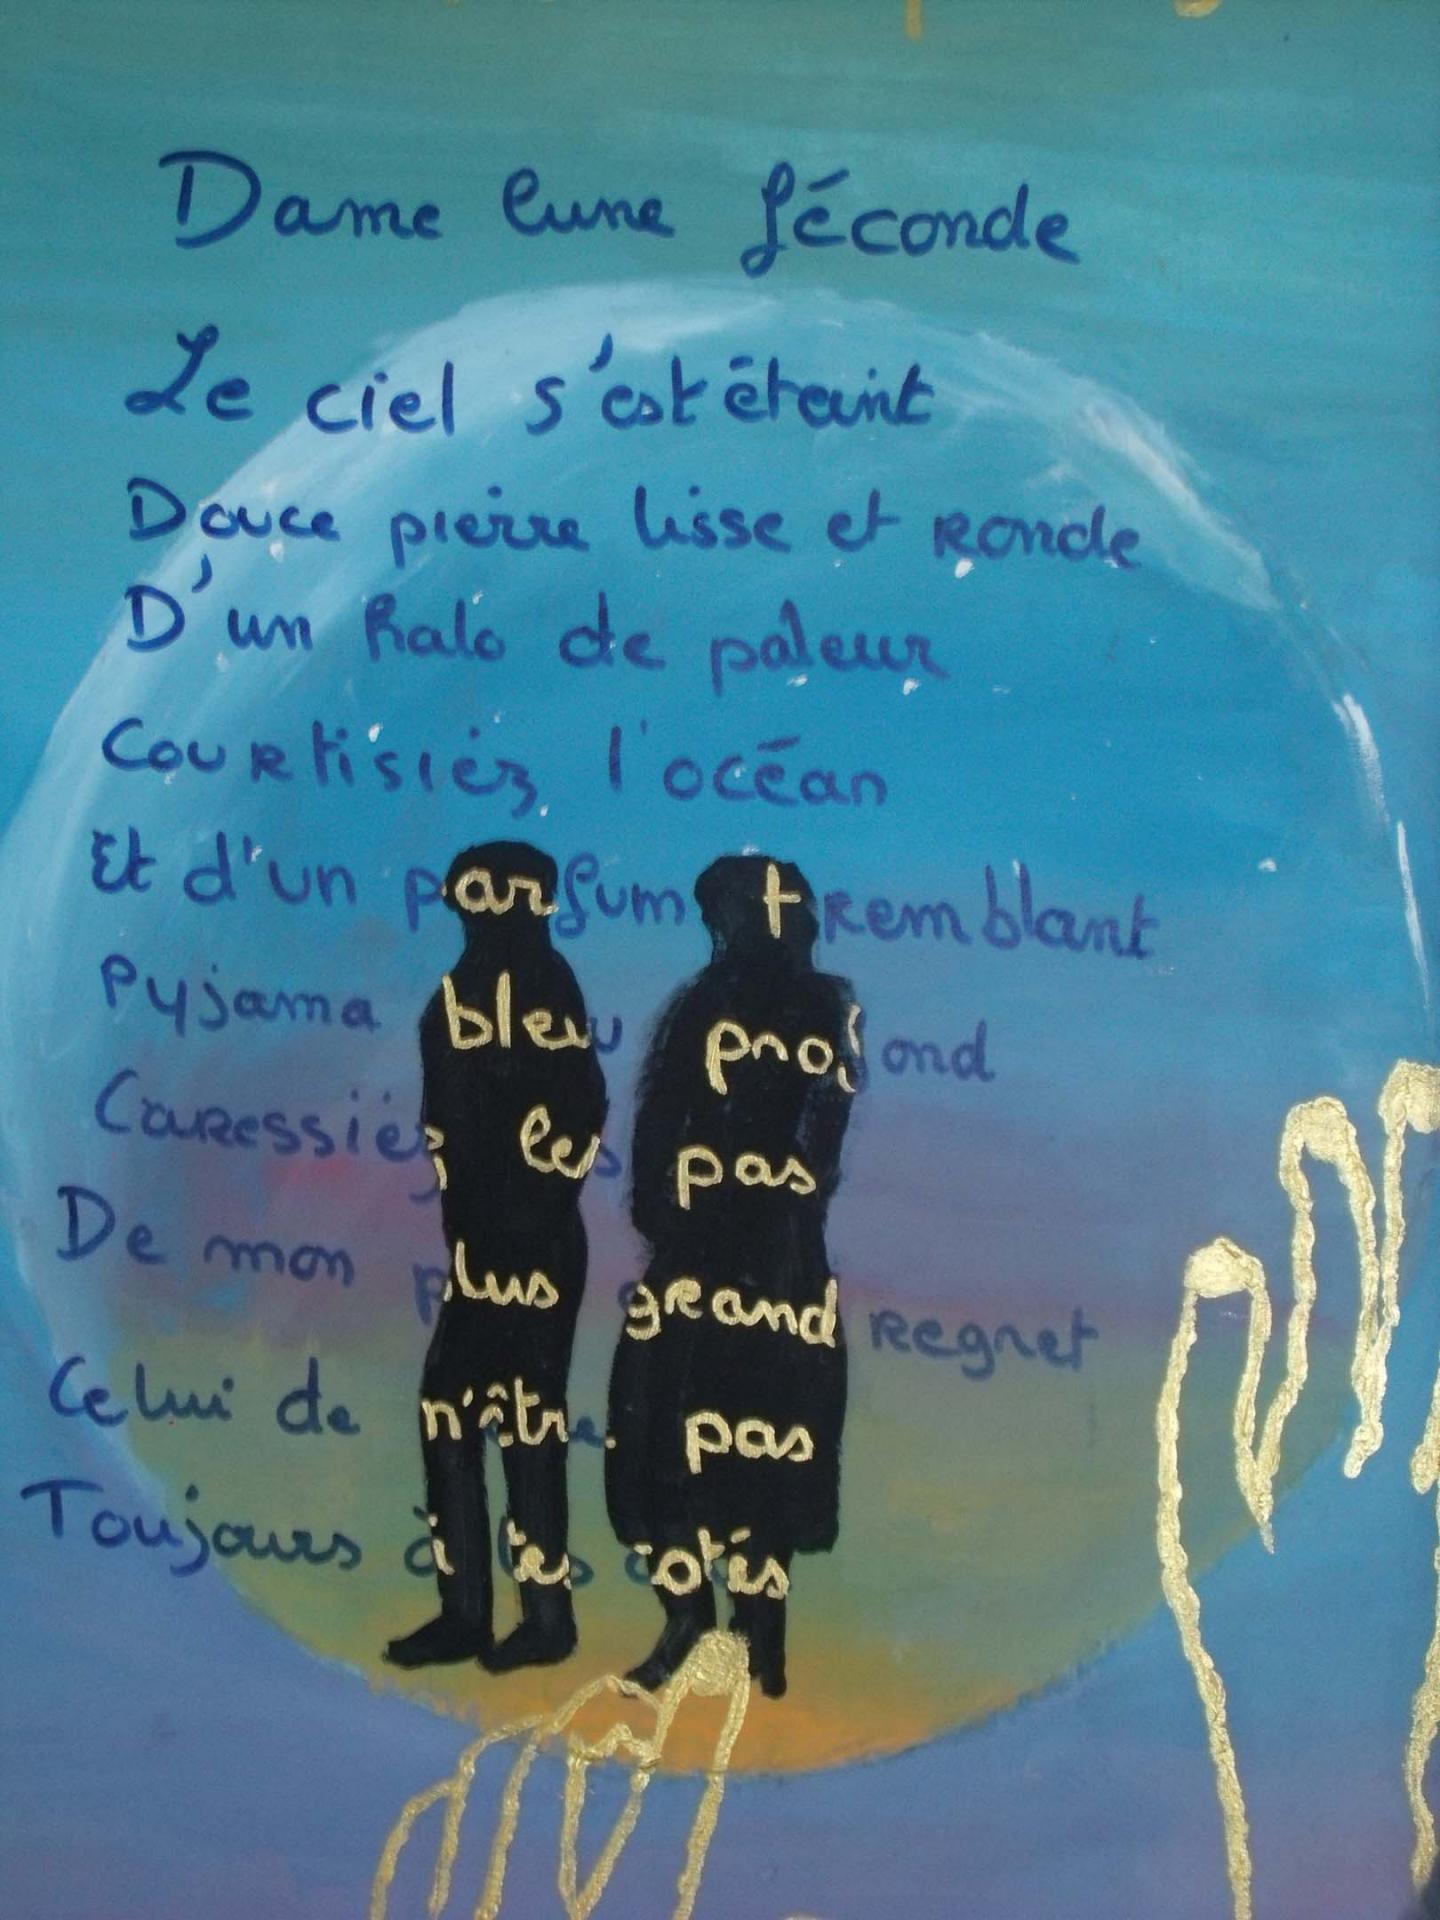 Dame lune féconde
Le ciel s'est éteint
Douce pierre lisse et ronde
D'un halo de pâleur
Courtisiez l'océan
Et d'un parfum tremblant
Pyjama bleu profond
Caressiez les pas
De mon plus grand regret
Celui de n'être pas
Toujours à tes cotés